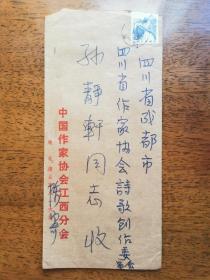 四川省成都市
四川省作家协会诗歌创作委员会
孙静轩同志收
中国作家协会江西分会